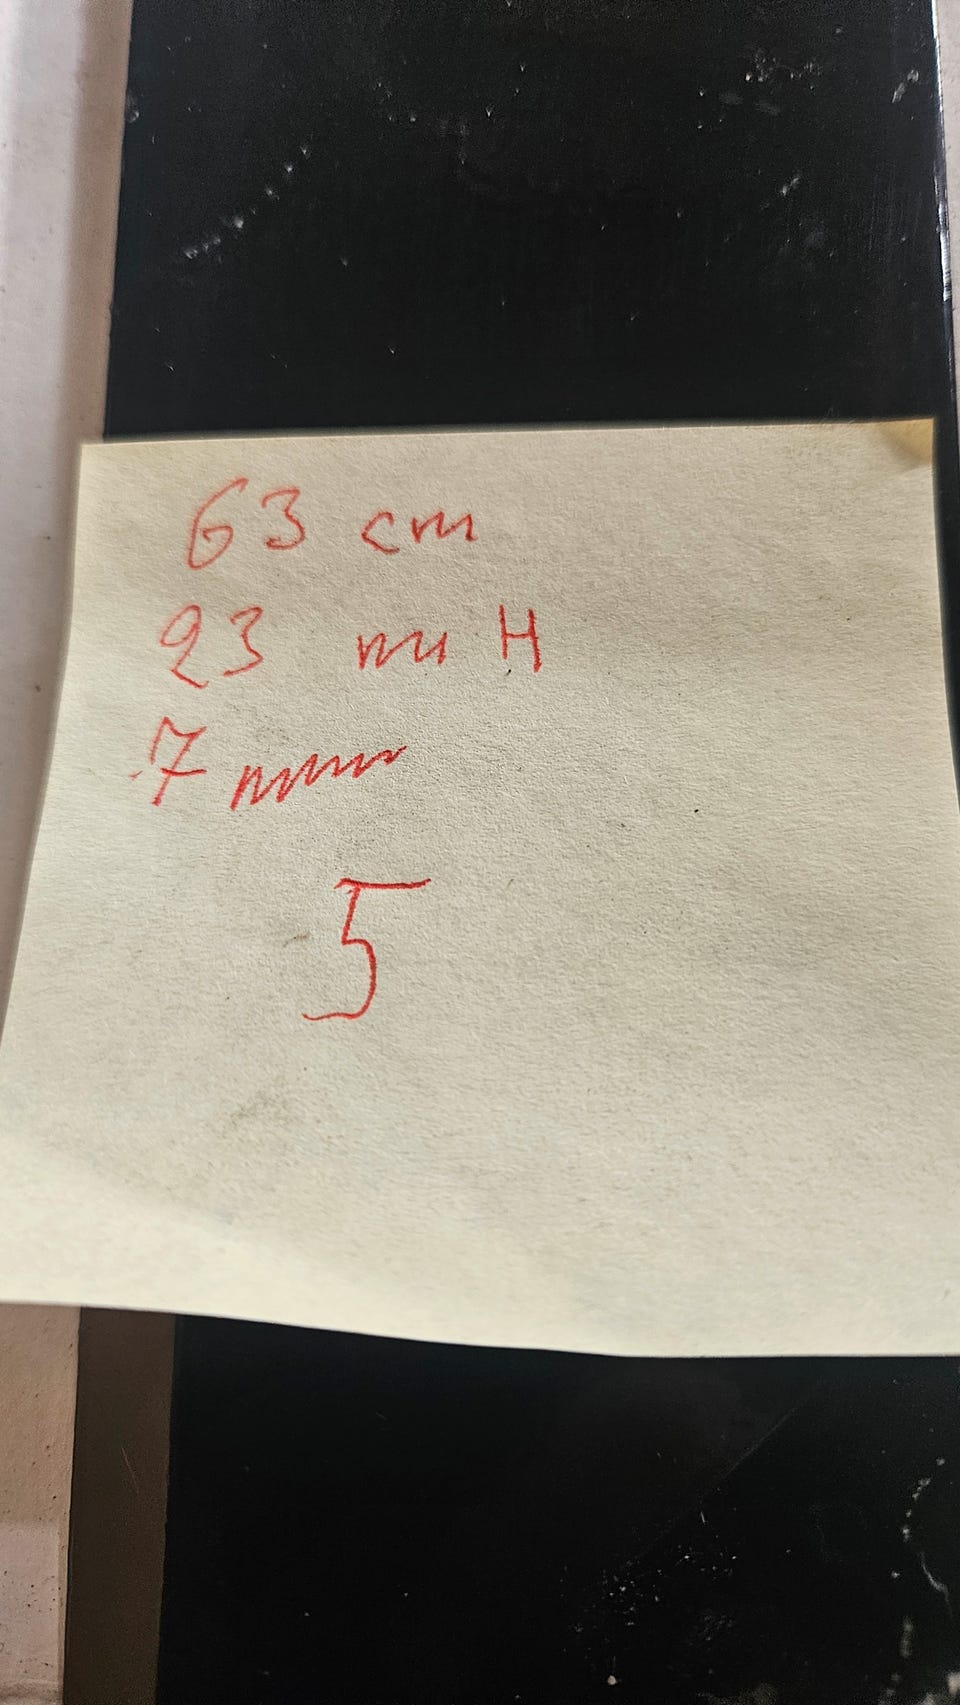 63 cm
23 mH
7 mm
5